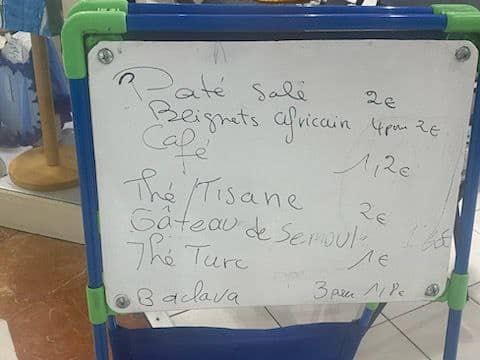 Paté salé 2€
Beignets africain 4 pour 2€
Café 1,2€
Thé/Tisane 2€
Gâteau de Semoule
Thé Turc 1€
Baclava 3 pour 1,8€